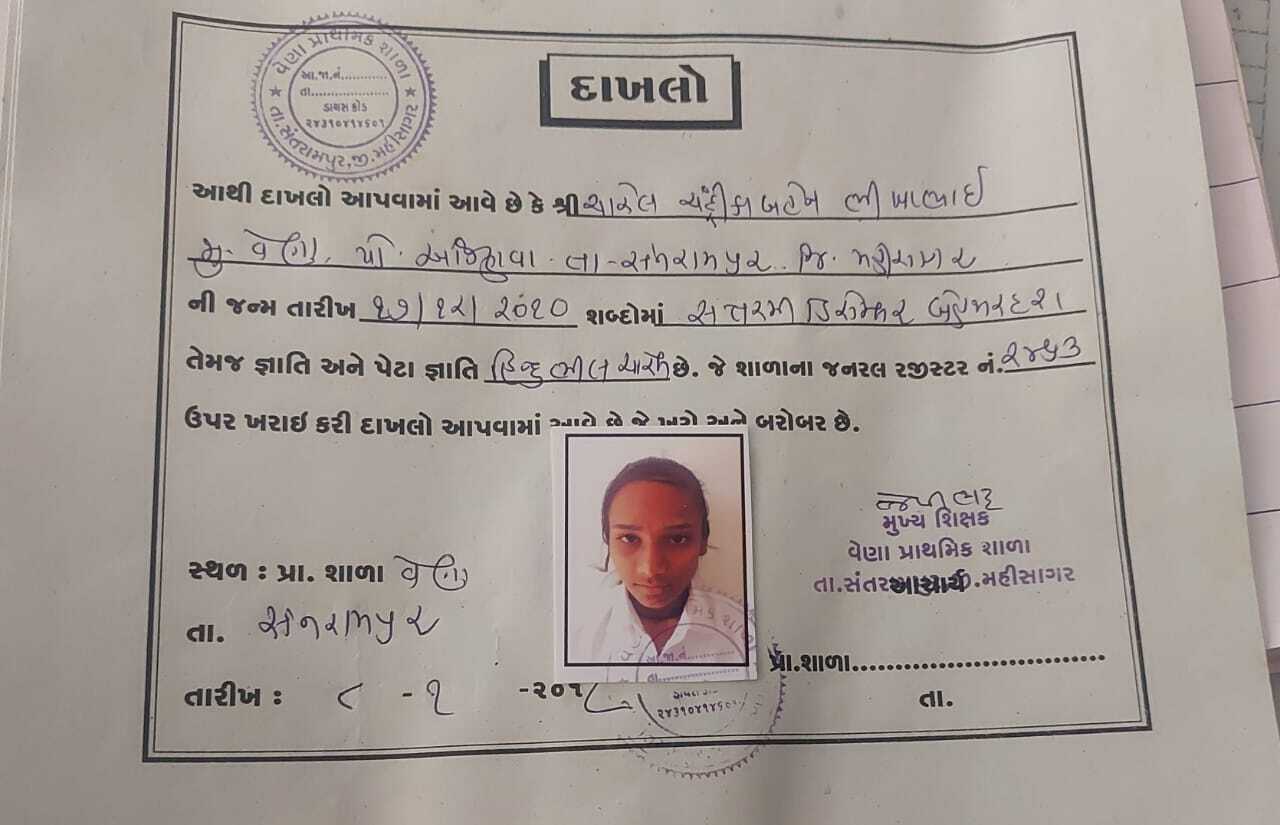 વેણા પ્રાથમિક શાળા
આ.જા.નં............
તા....................
ડાયસ કોડ
૨૪૩૧૦૪૧૪૬૦૧
તા.સંતરામપુર,જી.મહીસાગર
દાખલો
આથી દાખલો આપવામાં આવે છે કે શ્રી ચારેલ ચંદ્રીકા બહેન ભીખાભાઈ
મુ. વેણા. પો. અંજણવા તા-સંતરામપુર. જિ. મહીસાગર
ની જન્મ તારીખ ૧૭/૧૨/૨૦૧૦ શબ્દોમાં સત્તરમી ડિસેમ્બર બેહજારદશ
તેમજ જ્ઞાતિ અને પેટા જ્ઞાતિ હિન્દુ ભીલ ચારેલ છે. જે શાળાના જનરલ રજીસ્ટર નં. ૨૪૫૩
ઉપર ખરાઇ કરી દાખલો આપવામાં આવે છે જે ખરો અને બરોબર છે.
મુખ્ય શિક્ષક
વેણા પ્રાથમિક શાળા
સ્થળ : પ્રા. શાળા વેણા
તા.સંતરા આચાર્ય જી.મહીસાગર
તા. સંતરામપુર
પ્રા.શાળા................................
તારીખ : ૮ -૧ -૨૦૧૮
તા.